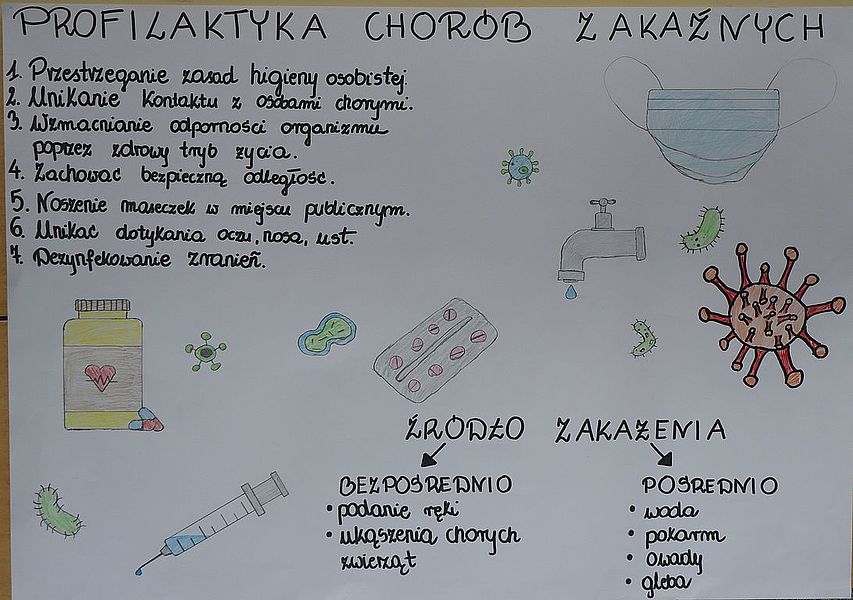 PROFILAKTYKA CHORÓB ZAKAŹNYCH
1. Przestrzeganie zasad higieny osobistej.
2. Unikanie kontaktu z osobami chorymi.
3. Wzmacnianie odporności organizmu
poprzez zdrowy tryb życia.
4. Zachować bezpieczną odległość.
5. Noszenie maseczek w miejscu publicznym.
6. Unikać dotykania oczu, nosa, ust.
7. Dezynfekowanie zranień.
ŹRÓDŁO ZAKAŻENIA
BEZPOŚREDNIO
• podanie ręki
• ukąszenia chorych
zwierząt
POŚREDNIO
• woda
• pokarm
• owady
• gleba